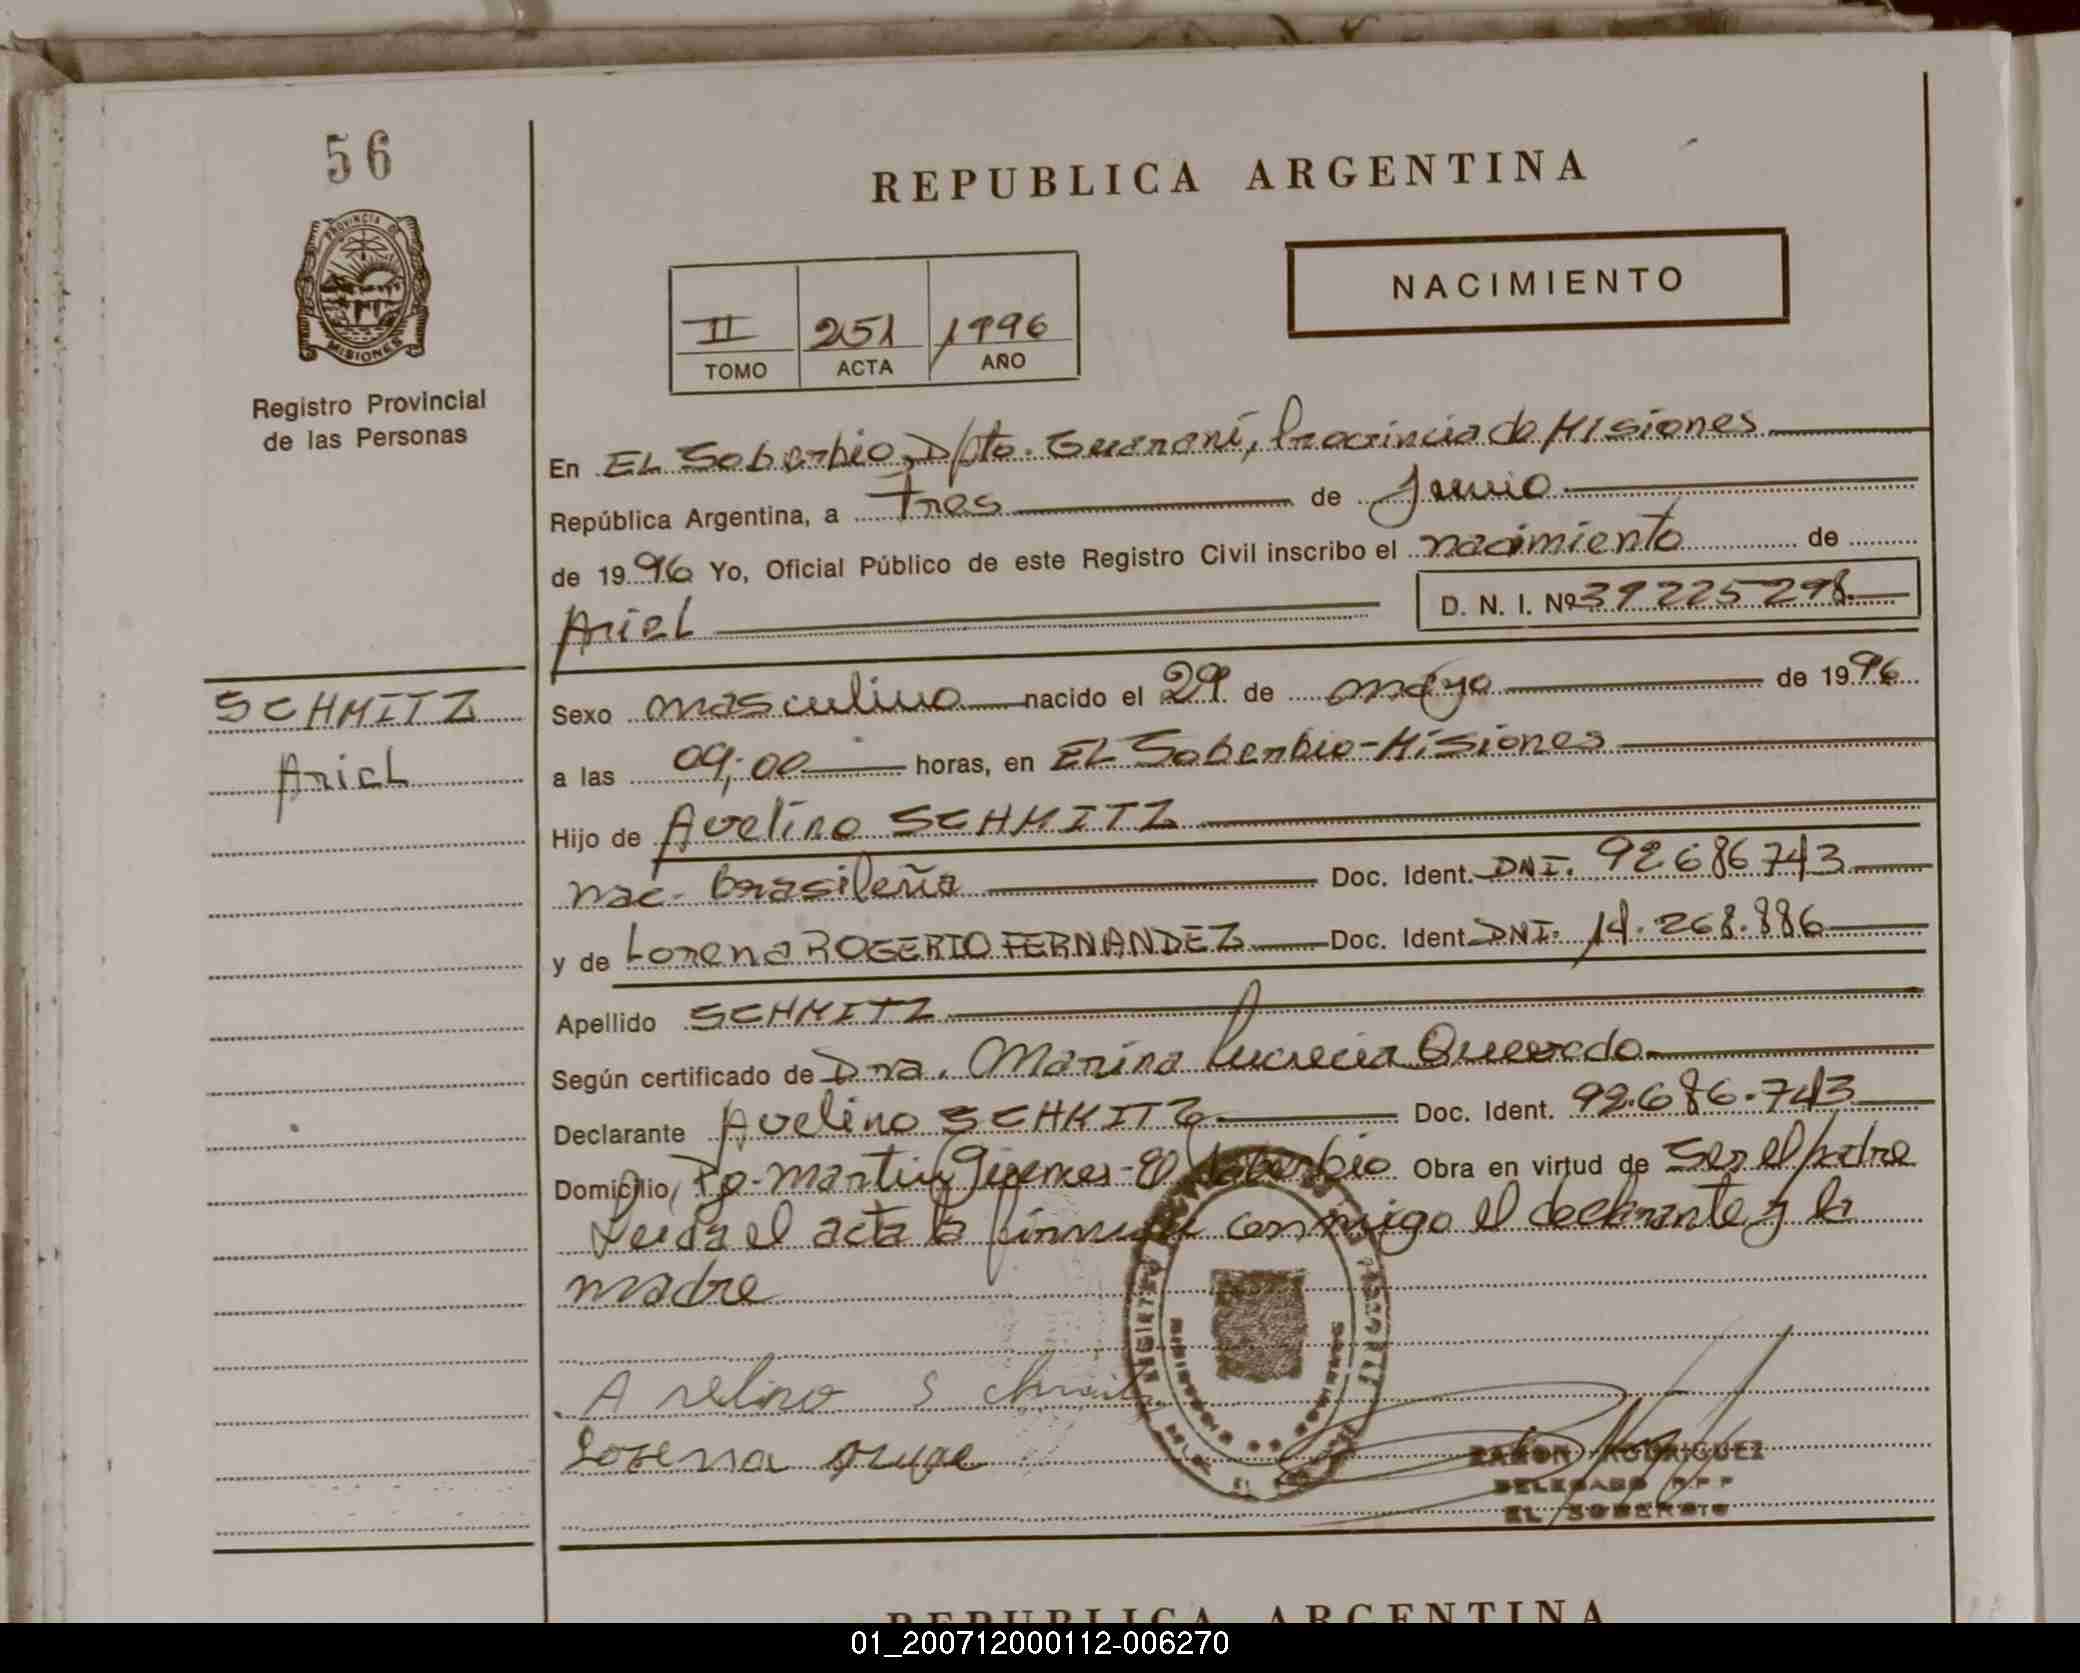 56
REPUBLICA ARGENTINA
PROVINCIA DE
MISIONES
NACIMIENTO
II 251 1996
TOMO ACTA AÑO
Registro Provincial
de las Personas
En EL Soberbio, Dpto. Guaraní, Provincia de Misiones
República Argentina, a tres de Junio
de 1996 Yo, Oficial Público de este Registro Civil inscribo el nacimiento de
Ariel D. N. I. Nº 39225298
SCHMITZ
Ariel
Sexo masculino nacido el 29 de mayo de 1996
a las 09,00 horas, en EL Soberbio-Misiones
Hijo de Avelino SCHMITZ
nac. brasileña Doc. Ident. DNI. 92686743
y de Lorena ROGERIO FERNANDEZ Doc. Ident DNI. 14.268.886
Apellido SCHMITZ
Según certificado de Dra. Marina Lucrecia Quevedo
Declarante Avelino SCHMITZ Doc. Ident. 92.686.743
Domicilio Pje. Martin Güemes-El Soberbio Obra en virtud de Ser el padre
Leida el acta la firman conmigo el declarante y la
madre
Avelino Schmitz
Lorena
RAMON RODRIGUEZ
DELEGADO R.P.P
EL SOBERBIO
REPUBLICA ARGENTINA
01_200712000112-006270